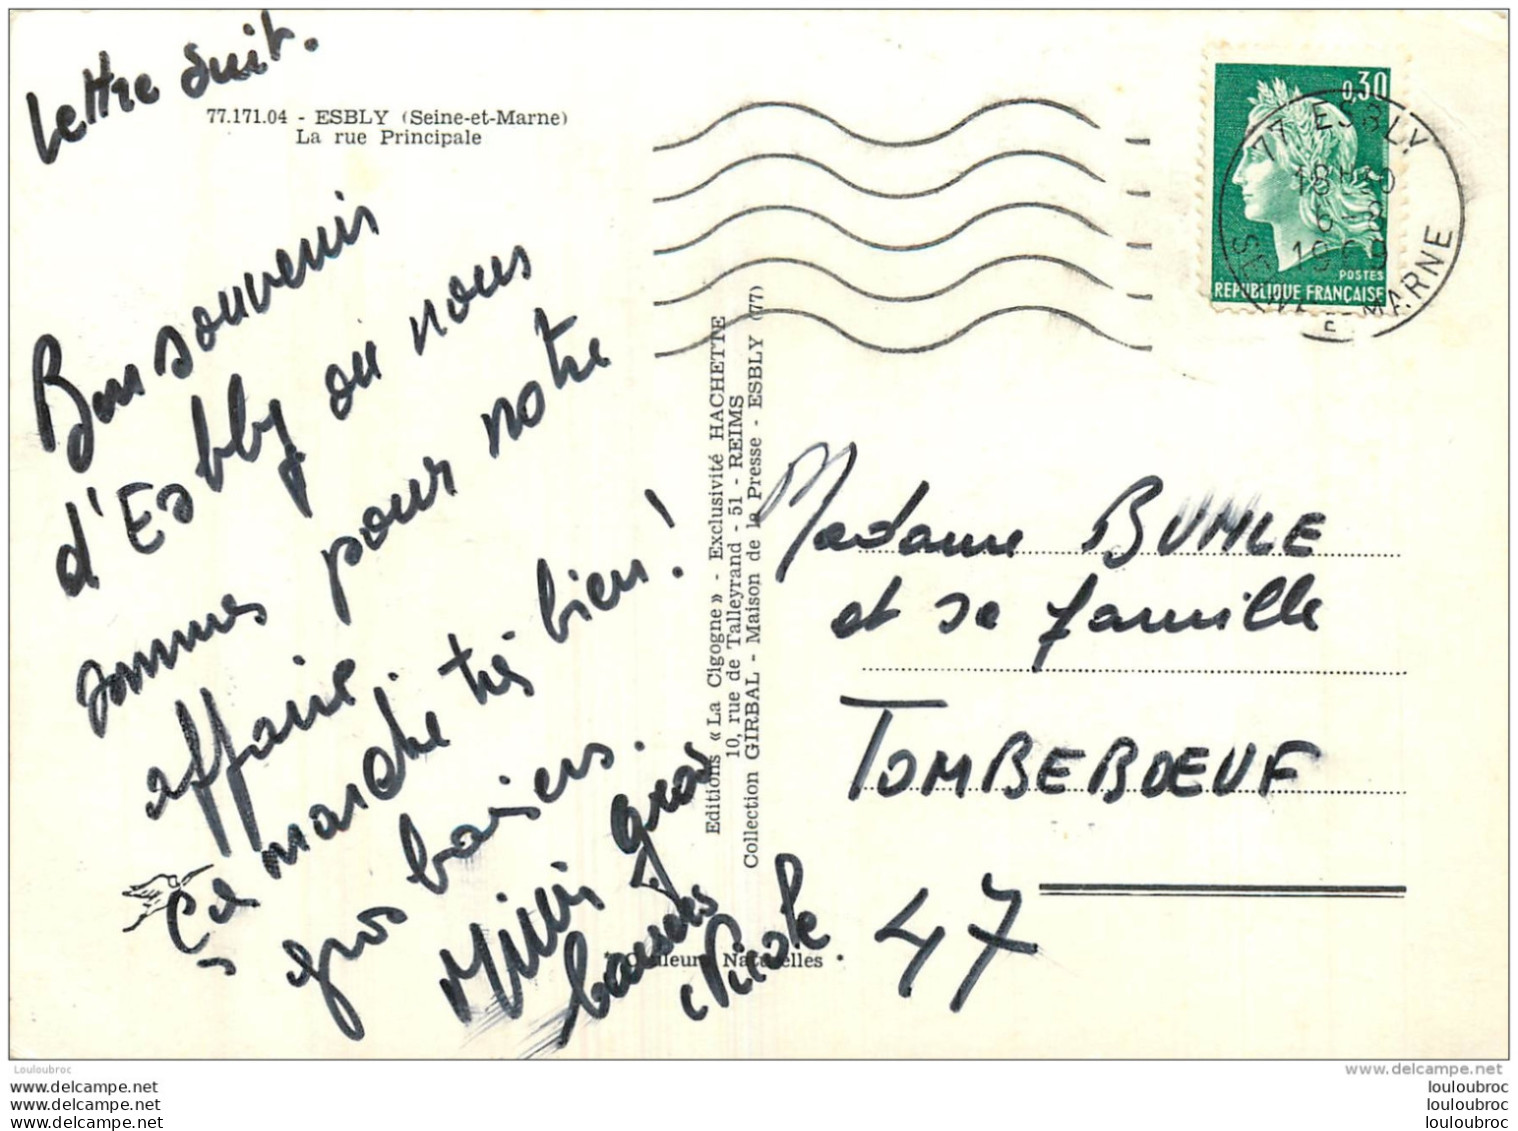 Lettre suit.
77.171.04 - ESBLY (Seine-et-Marne)
La rue Principale
Bons souvenirs
d'Esbly où nous
sommes pour notre
affaire.
Ça marche très bien!
gros baisers.
gros
Nicole
Couleurs Naturelles
Editions « La Cigogne » - Exclusivité HACHETTE
10, rue de Talleyrand - 51 - REIMS
Collection GIRBAL - Maison de la Presse - ESBLY (77)
0,30
POSTES
REPUBLIQUE FRANÇAISE
77 ESBLY
18H
6-8
SEINE-ET-MARNE
Madame BUMLE
et sa famille
TOMBEBŒUF
47
Louloubroc
www.delcampe.net
www.delcampe.net
www.delcampe.net
www.delcampe.net
louloubroc
louloubroc
louloubroc